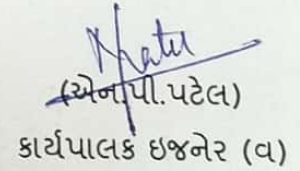 (એન.પી.પટેલ)
કાર્યપાલક ઇજનેર (વ)